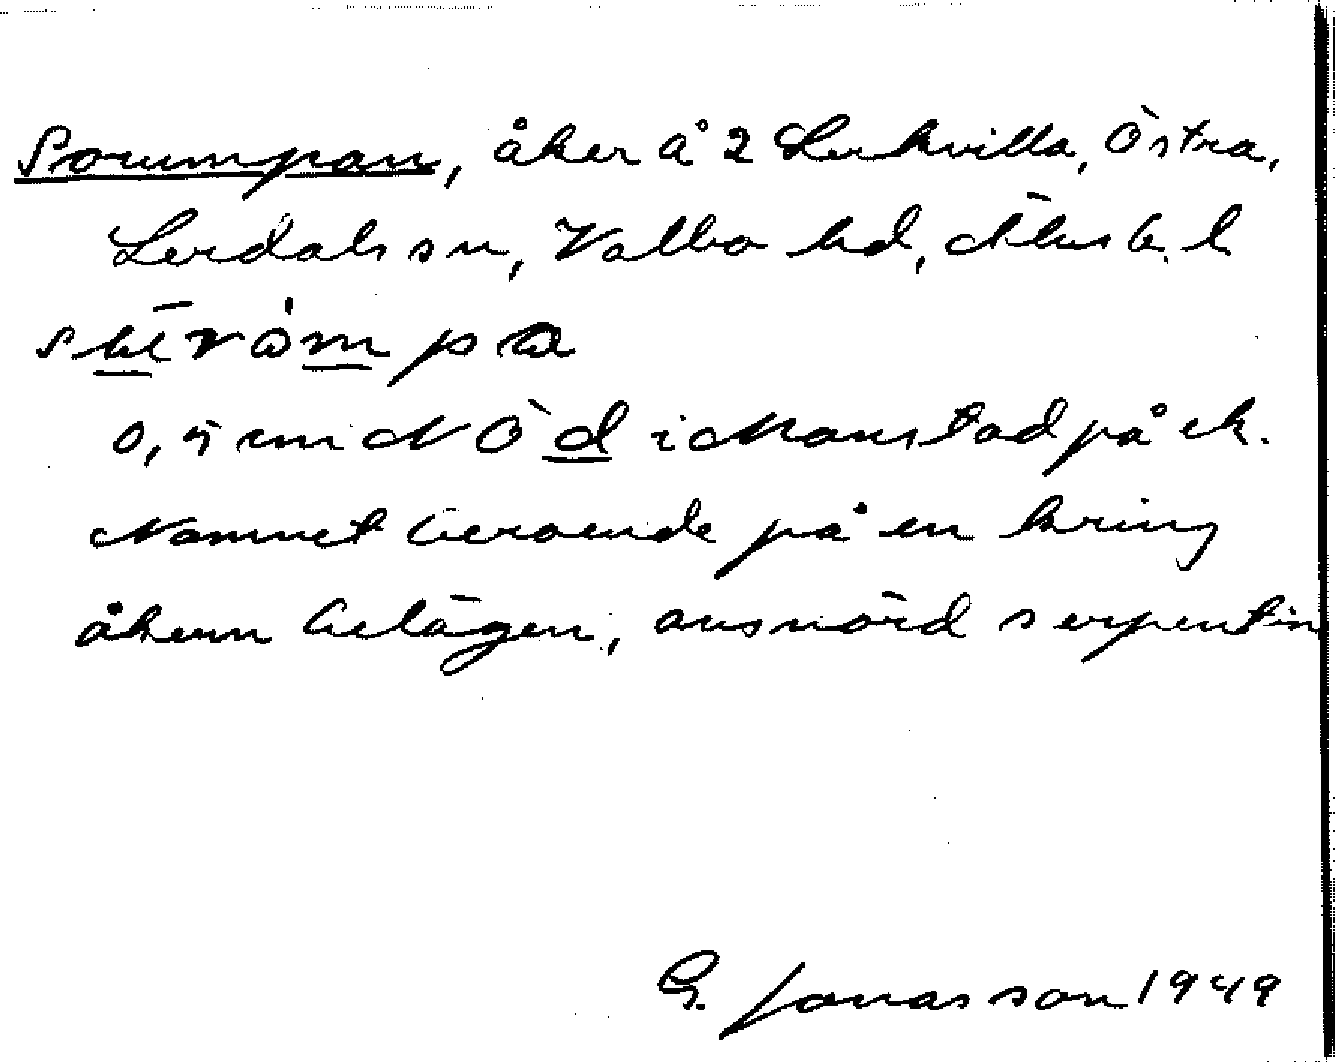 Srumpan, åker å 2 Lukvilla, Östra,
Lerdals sn, Valbo hd, Älvsb. l
0,5 cm N Ö d i Monstad på ek.
Namnet beroende på en kring
åkern belägen, ansnörd serpentin
G. Jonasson 1949